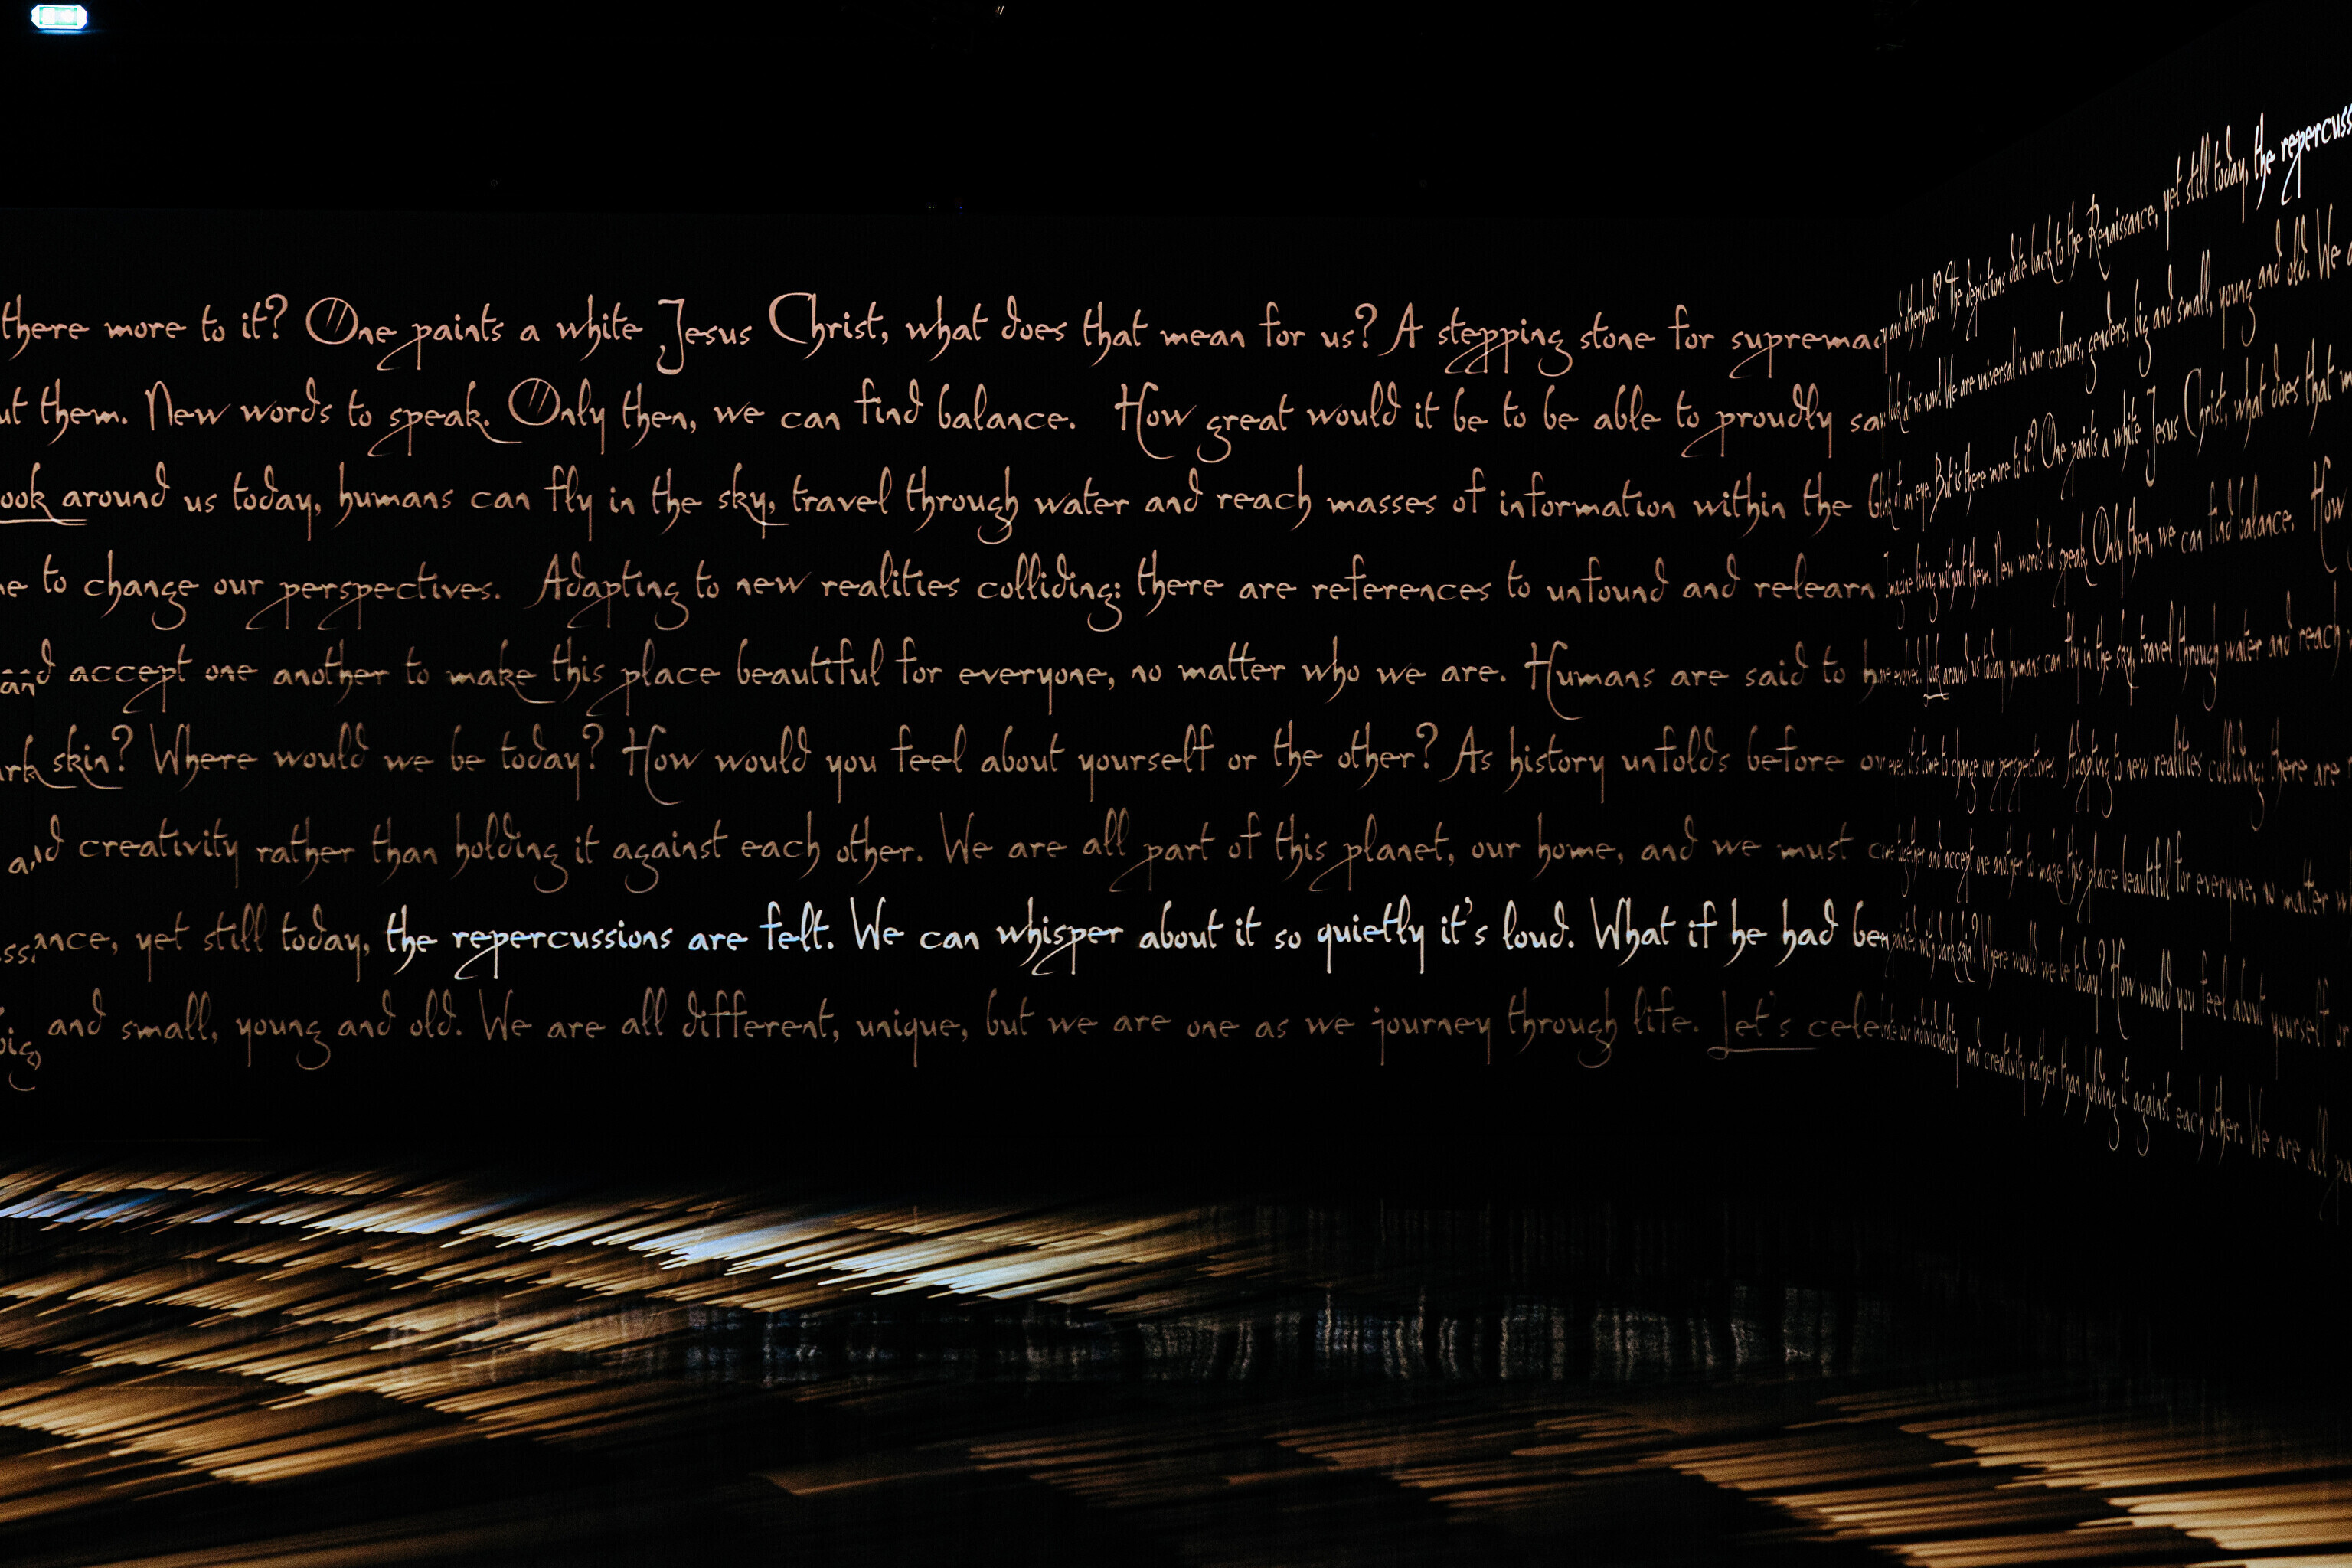 there more to it? One paints a white Jesus Christ, what does that mean for us? A stepping stone for supremacy
ut them. New words to speak. Only then, we can find balance. How great would it be to be able to proudly say
ook around us today, humans can fly in the sky, travel through water and reach masses of information within the bl
ne to change our perspectives. Adapting to new realities colliding: there are references to unfound and relearn.
and accept one another to make this place beautiful for everyone, no matter who we are. Humans are said to h
ark skin? Where would we be today? How would you feel about yourself or the other? As history unfolds before ou
and creativity rather than holding it against each other. We are all part of this planet, our home, and we must c
ssance, yet still today, the repercussions are felt. We can whisper about it so quietly it's loud. What if he had been
big, and small, young and old. We are all different, unique, but we are one as we journey through life. Let's cele
The depictions date back to the Renaissance, yet still today, the repercuss
look at us now! We are universal in our colours, genders, big and small, young and old. We a
of an eye. But is there more to it? One paints a white Jesus Christ, what does that m
Imagine living without them. New words to speak. Only then, we can find balance. How
evolved. Look around us today, humans can fly in the sky, travel through water and reach
eyes, it's time to change our perspectives. Adapting to new realities colliding: there are r
together and accept one another to make this place beautiful for everyone, no matter w
painted with dark skin? Where would we be today? How would you feel about yourself or
our individuality and creativity rather than holding it against each other. We are all pa